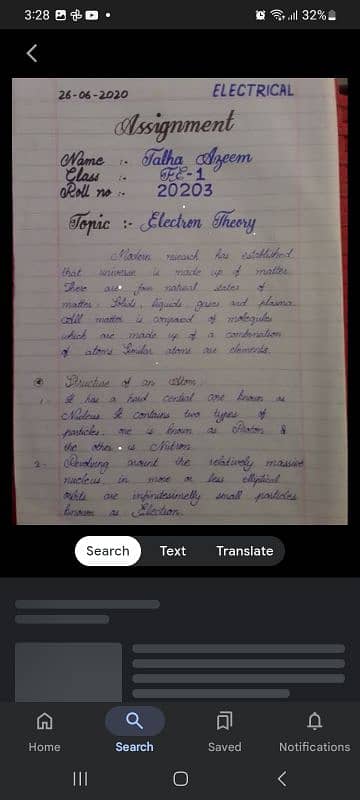 3:28
32%
26-06-2020 ELECTRICAL
Assignment
Name :- Talha Azeem
Class :- FE-1
Roll no :- 20203
Topic :- Electron Theory
Modern reseach has established
that universe is made up of matter.
There are four natural states of
matter. Solids, liquids, gases and plasma.
All matter is composed of molequles
which are made up of a combination
of atoms. Similar atoms are elements.
Structure of an Atom.
1- It has a hard central core known as
Nucleus. It contains two types of
particles, one is known as Proton &
the other is Nutron.
2- Revolving around the relatively massive
nucleus, in more or less elliptical
orbits are infinitesimelly small particles
known as Electron.
Search Text Translate
Home Search Saved Notifications